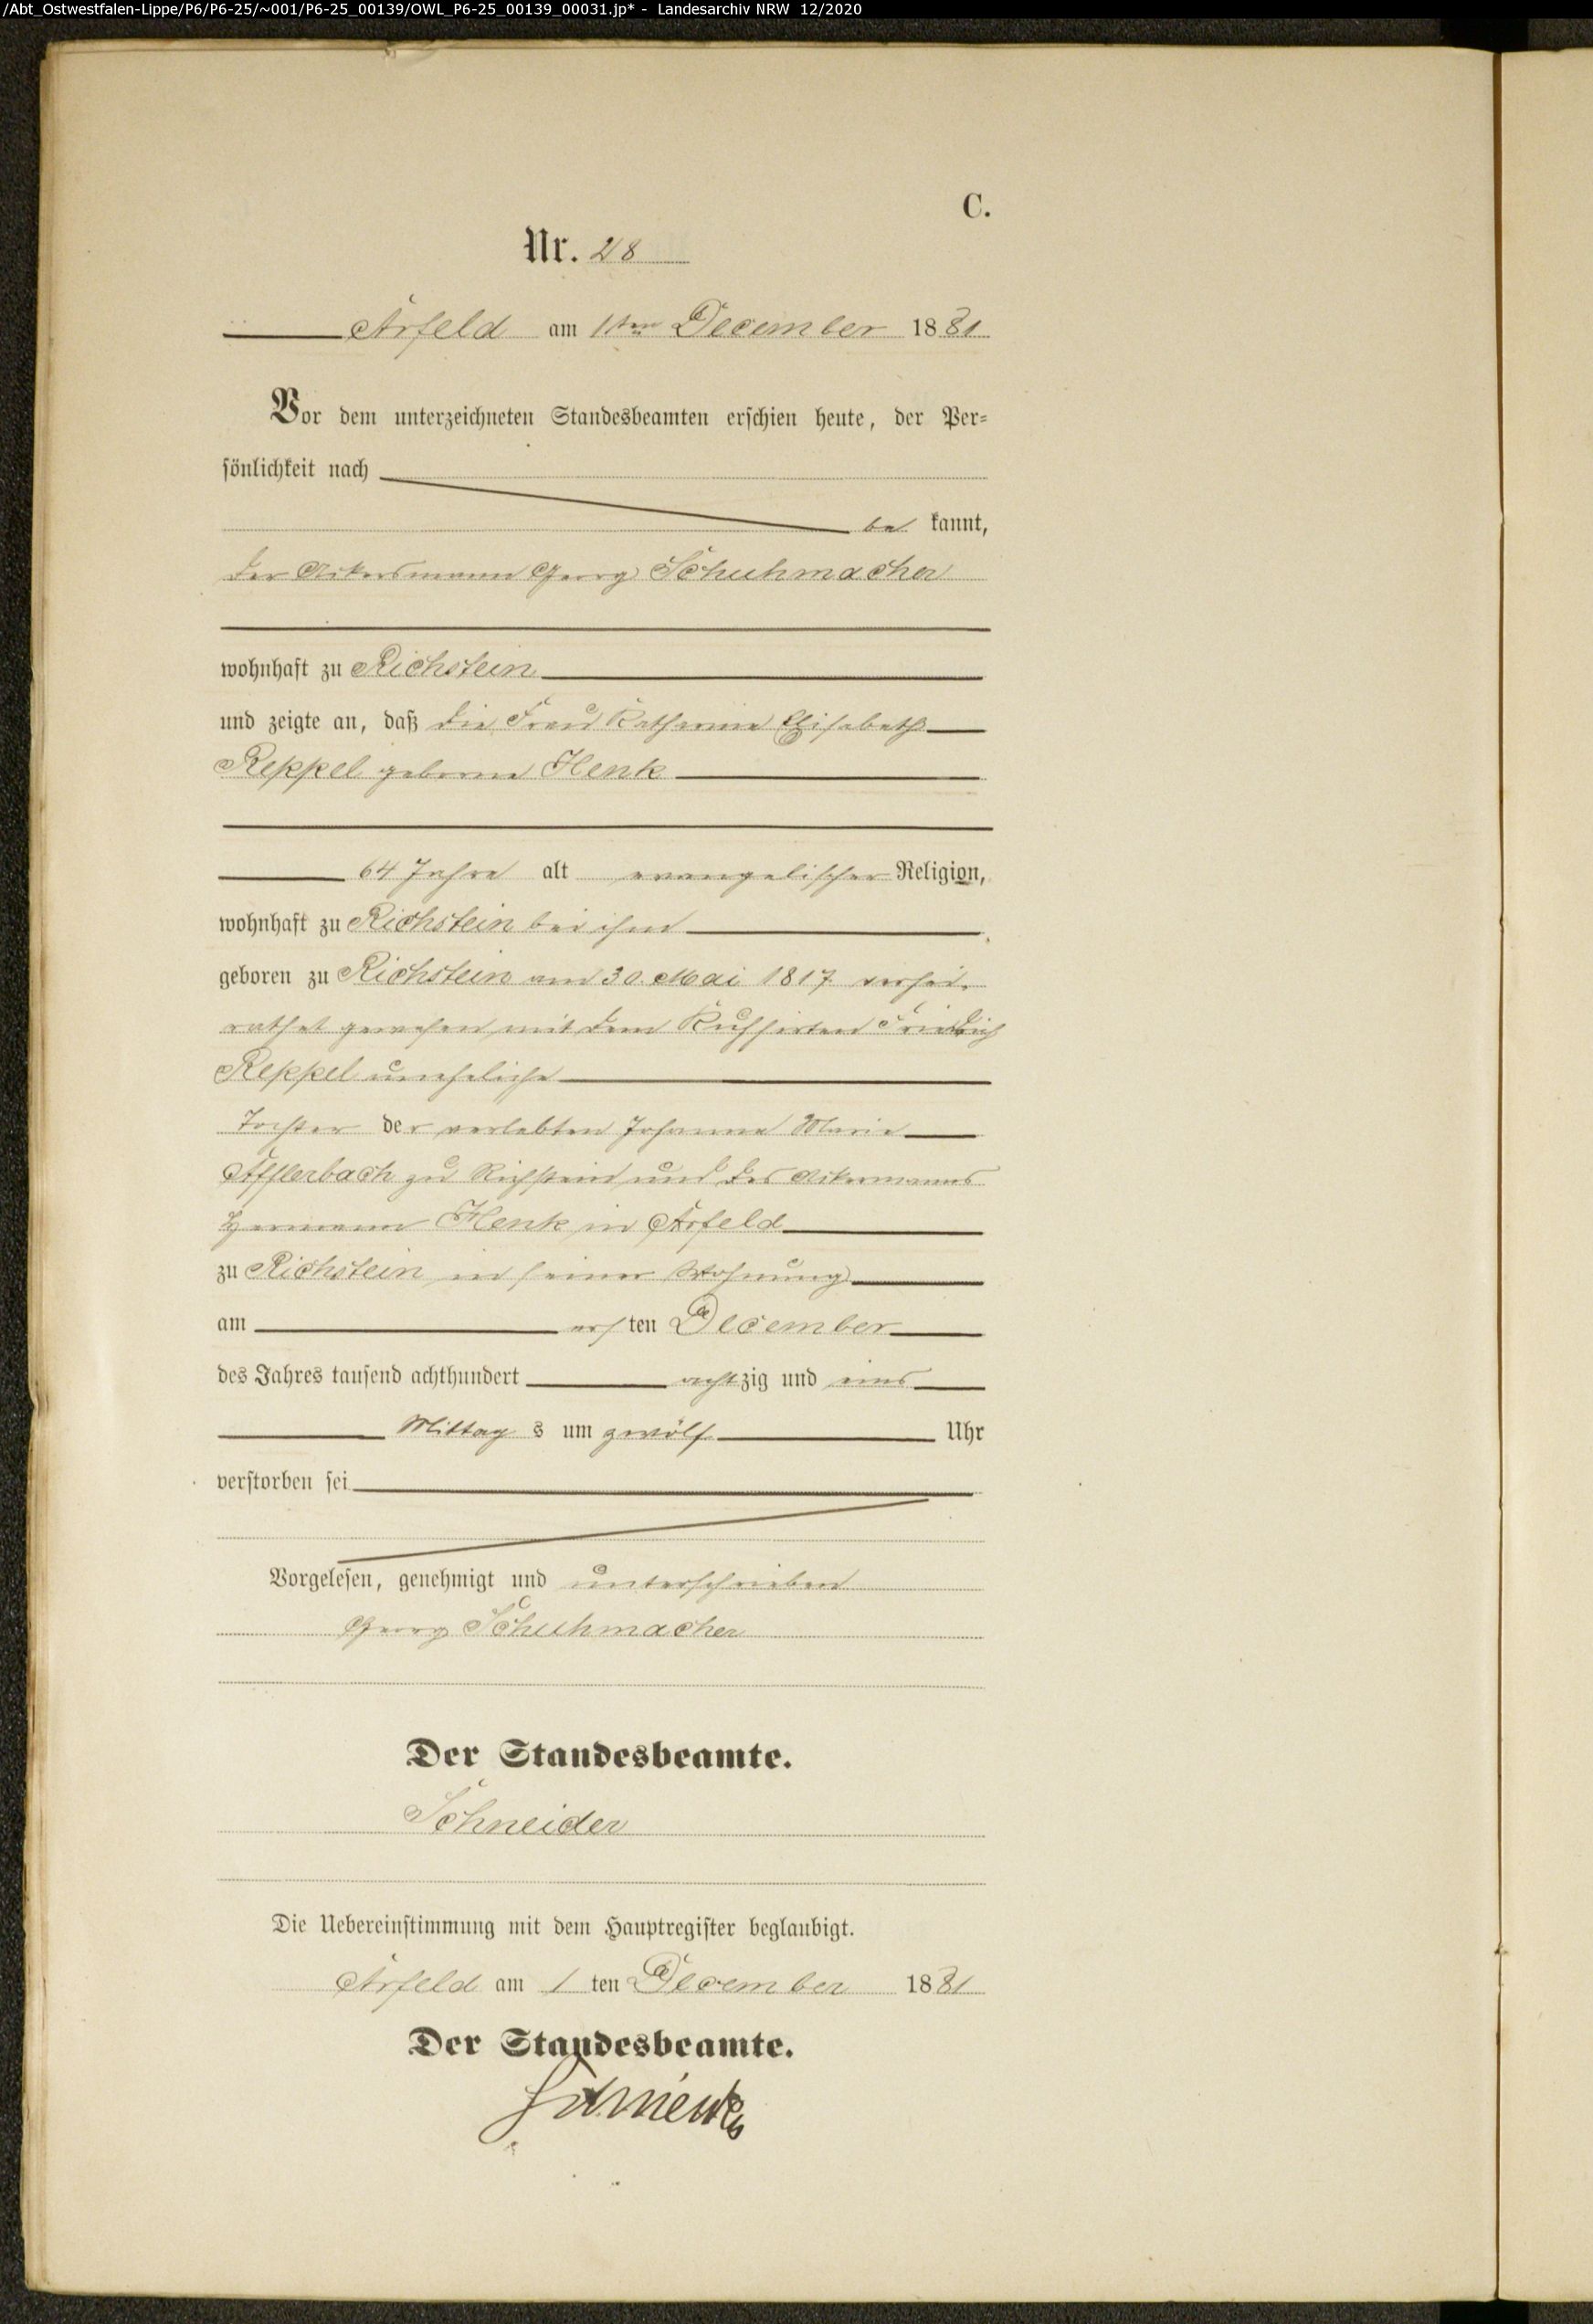 /Abt_Ostwestfalen-Lippe/P6/P6-25/~001/P6-25_00139/OWL_P6-25_00139_00031.jp* - Landesarchiv NRW 12/2020
C.
Nr. 28
Arfeld am 1ten December 1881
Vor dem unterzeichneten Standesbeamten erschien heute, der Per=
sönlichkeit nach
be kannt,
der Ackersmann Georg Schuhmacher
wohnhaft zu Richstein
und zeigte an, daß die Frau Katharine Elisabeth
Reppel geborne Henk
64 Jahre alt evangelischer Religion,
wohnhaft zu Richstein bei ihm
geboren zu Richstein am 30. Mai 1817 verhei-
rathet gewesen mit dem Kuhhirten Friedrich
Reppel uneheliche
Tochter der verlebten Johanna Marie
Afflerbach zu Richstein und des Ackermanns
Hermann Henk in Arfeld
zu Richstein in seiner Wohnung
am ersten December
des Jahres tausend achthundert achtzig und eins
Mittag s um zwölf Uhr
verstorben sei
Vorgelesen, genehmigt und unterschrieben
Georg Schuhmacher
Der Standesbeamte.
Schneider
Die Uebereinstimmung mit dem Hauptregister beglaubigt.
Arfeld am 1 ten December 1881
Der Standesbeamte.
Schneider